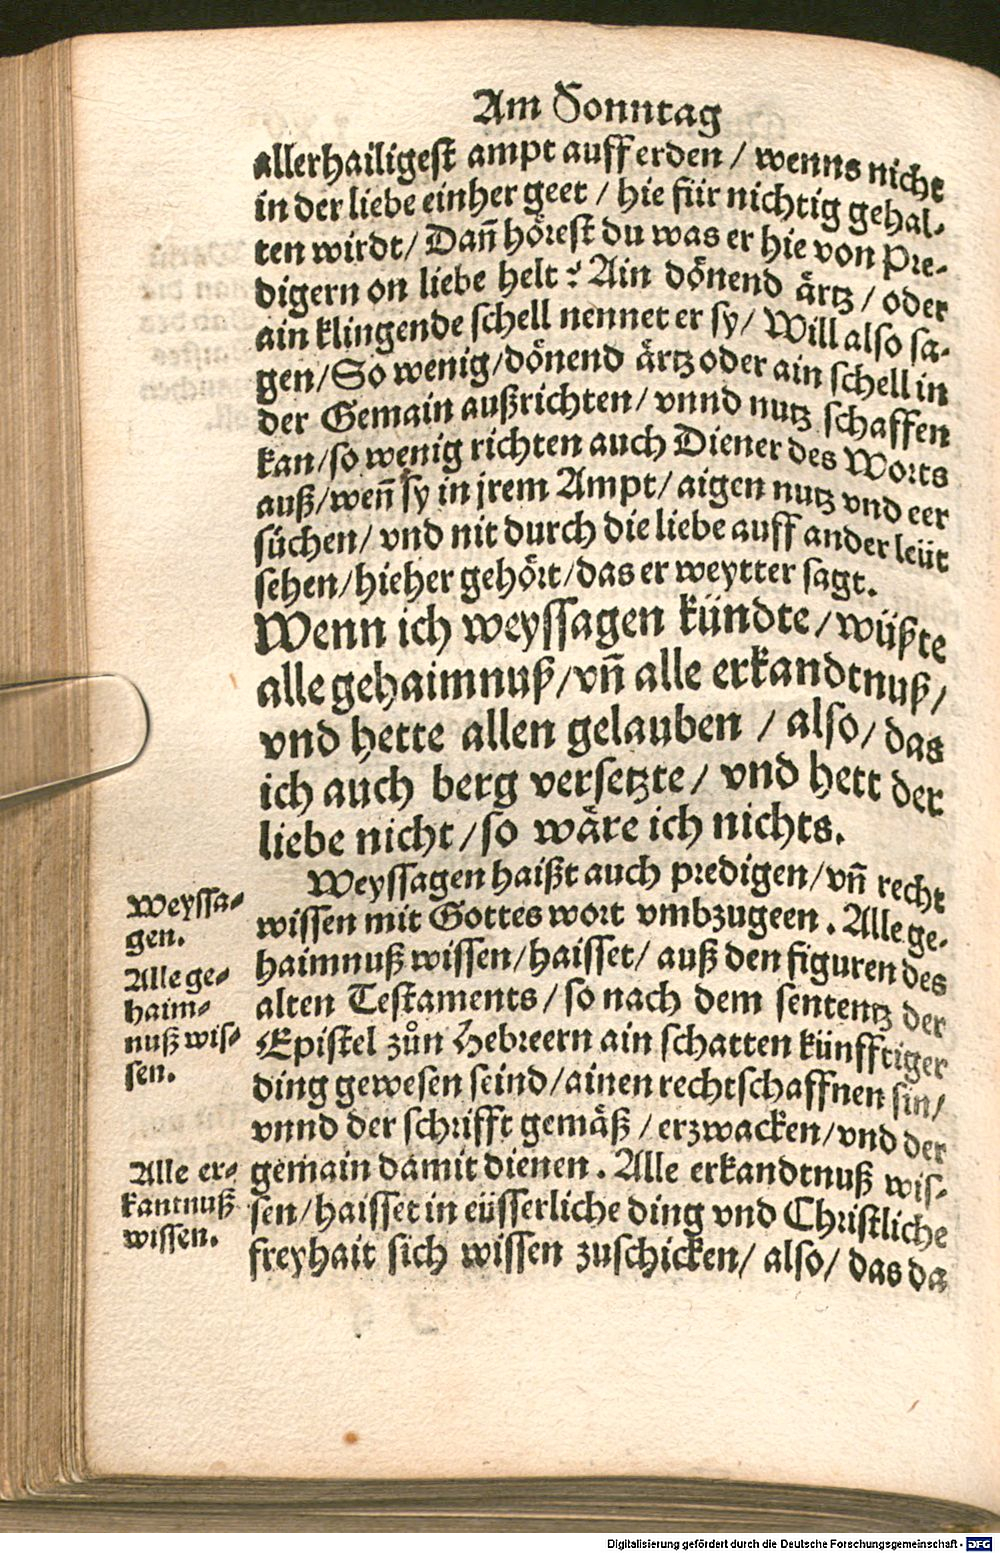 Am Sonntag
allerhailigest ampt auff erden / wenns nicht
in der liebe einher geet / hie für nichtig gehal-
ten wirdt / Dañ hörest du was er hie von Pre-
digern on liebe helt? Ain dönend ärtz / oder
ain klingende schell nennet er sy / Will also sa-
gen / So wenig / dönend ärtz oder ain schell in
der Gemain außrichten / vnnd nutz schaffen
kan / so wenig richten auch Diener des Worts
auß / weñ sy in jrem Ampt / aigen nutz vnd eer
süchen / vnd nit durch die liebe auff ander leüt
sehen / hieher gehört / das er weytter sagt.
Wenn ich weyssagen kündte / wüßte
alle gehaimnuß / vñ alle erkandtnuß /
vnd hette allen gelauben / also / das
ich auch berg versetzte / vnd hett der
liebe nicht / so wäre ich nichts.
Weyssagen haißt auch predigen / vñ recht
wissen mit Gottes wort vmbzugeen. Alle ge-
haimnuß wissen / haisset / auß den figuren des
alten Testaments / so nach dem sententz der
Epistel zůn Hebreern ain schatten künfftiger
ding gewesen seind / ainen rechtschaffnen sin /
vnnd der schrifft gemäß / erzwacken / vnd der
gemain damit dienen. Alle erkandtnuß wis-
sen / haisset in eüsserliche ding vnd Christliche
freyhait sich wissen zuschicken / also / das da
Weyssa-
gen.
Alle ge-
haim-
nuß wis-
sen.
Alle er-
kantnuß
wissen.
Digitalisierung gefördert durch die Deutsche Forschungsgemeinschaft - DFG